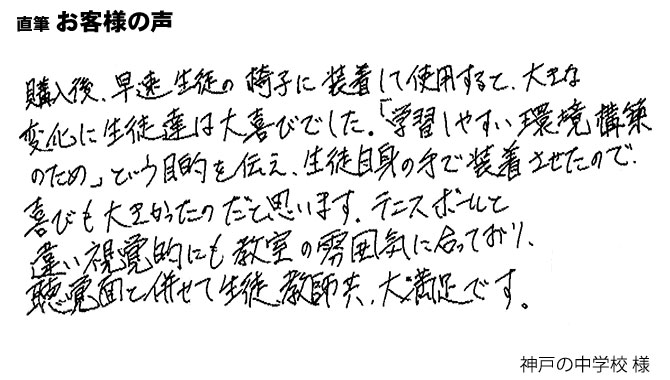 直筆 お客様の声
購入後、早速生徒の椅子に装着して使用すると、大きな
変化に生徒達は大喜びでした。「学習しやすい環境構築
のため」という目的を伝え、生徒自身の手で装着させたので、
喜びも大きかったのだと思います。テニスボールと
違い視覚的にも教室の雰囲気に合っており、
聴覚面と併せて生徒、教師共、大満足です。
神戸の中学校 様